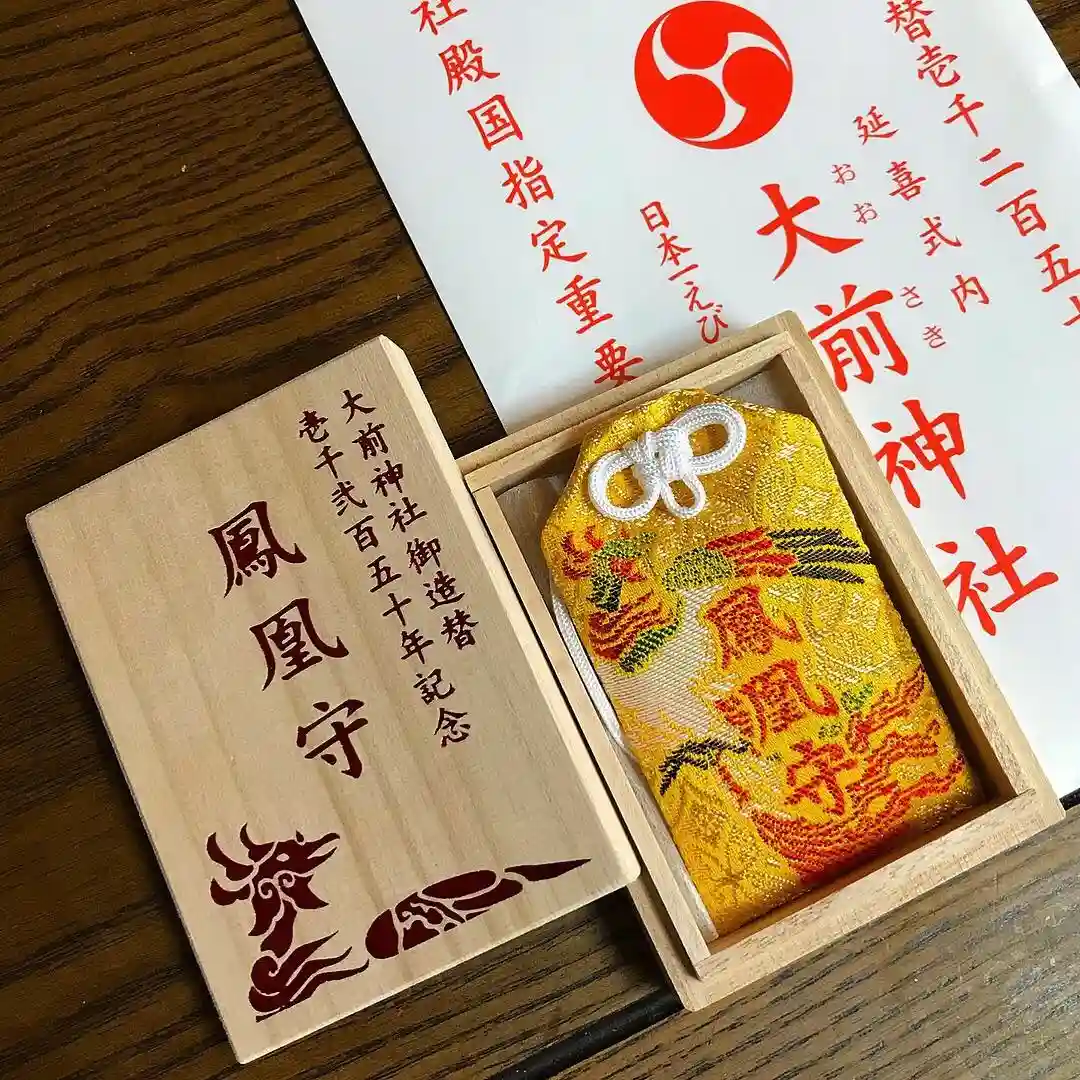 替壱千二百五十
延喜式内
おおさき
大前神社
日本一えび
社殿国指定重要
大前神社御造替
壱千弐百五十年記念
鳳凰守
鳳凰守